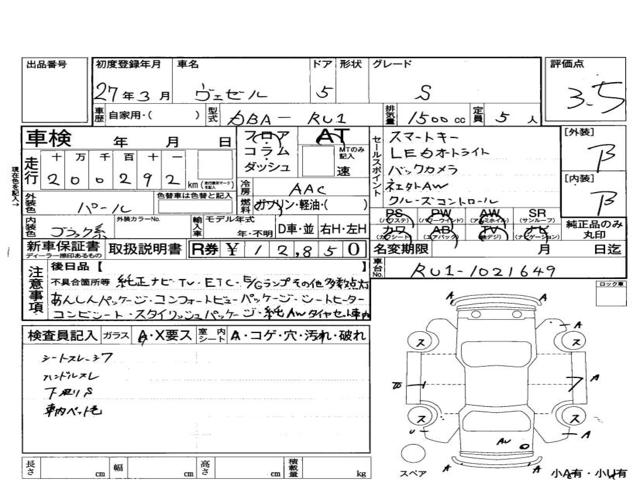 出品番号 初度登録年月 車名 ドア 形状 グレード 評価点
27年3月 ヴェゼル 5 S 3.5
車歴 自家用・( ) 型式 DBA-RU1 排気量 1500cc 定員 5人
車検 年 月 日 フロア・コラム・ダッシュ AT MTのみ記入 速
走行 十万千百十一 200292 km
冷房 AAC
燃料 ガソリン・軽油・( )
外装色 パール 色替車は色替と記入
内装色 ブラック系 外装カラーNo. 輸入車 モデル年式 年・不明 D車・並 右H・左H
セールスポイント
スマートキー
LEDオートライト
バックカメラ
純正AW
クルーズコントロール
PS PW AW SR
(パワステ) (パワーウインド) (アルミホイル) (サンルーフ)
カワ AB TV ナビ
(カワシート) (エアバック) (地デジ) (ナビゲーション)
[外装] B
[内装] B
純正品のみ丸印
新車保証書 取扱説明書 R券 ¥12,850 名変期限 月 日迄
ディーラー捺印あるもの
車台No. RU1-1021649
ロック車
注意事項
後日品【
不具合箇所等 純正ナビ・TV・ETC・F/Gランプその他多数点灯
あんしんパッケージ・コンフォートビューパッケージ・シートヒーター
コンビシート・スタイリッシュパッケージ・純AWタイヤセット車内
検査員記入 ガラス A・X要ス 室内シート A・コゲ・穴・汚れ・破れ
シートスレ・シワ
ハンドルスレ
下廻りS
車内ペット毛
A A
ス ス
A
ス ス
U A
AU
A
スペア
小A有・小U有
長さ cm 幅 cm 高さ cm 積載量 kg